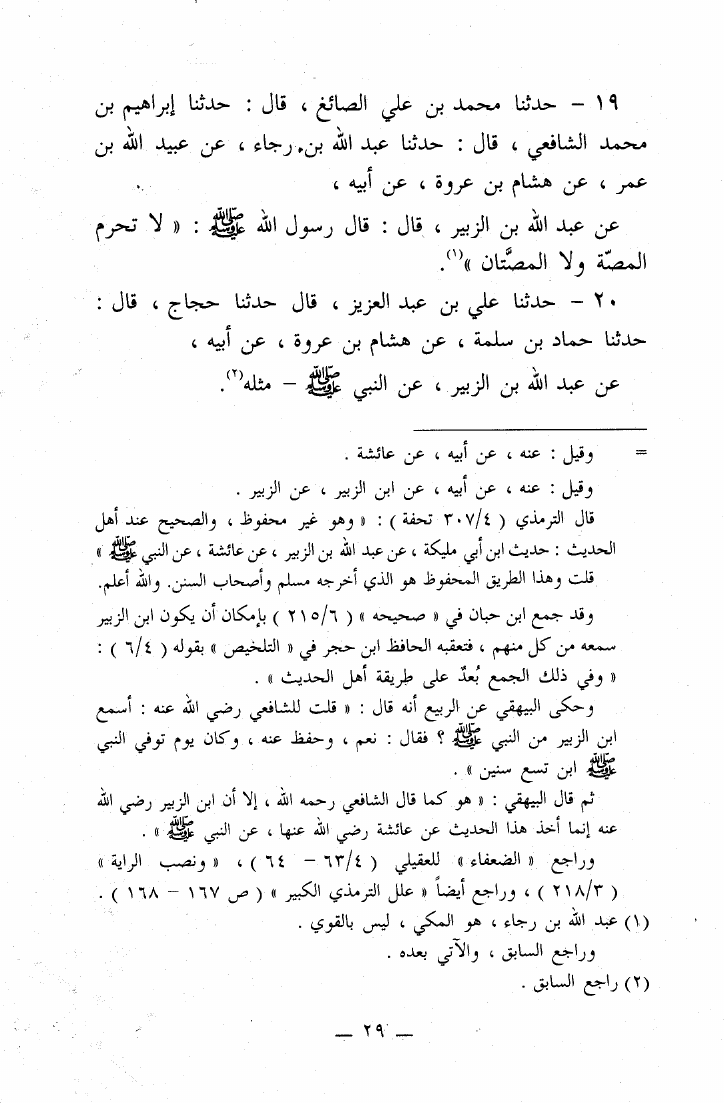 ١٩ – حدثنا محمد بن علي الصائغ ، قال : حدثنا إبراهيم بن
محمد الشافعي ، قال : حدثنا عبد الله بن رجاء ، عن عبيد الله بن
عمر ، عن هشام بن عروة ، عن أبيه ،
عن عبد الله بن الزبير ، قال : قال رسول الله ﷺ : « لا تحرم
المصّة ولا المصَّتان »(١).
٢٠ – حدثنا علي بن عبد العزيز ، قال حدثنا حجاج ، قال :
حدثنا حماد بن سلمة ، عن هشام بن عروة ، عن أبيه ،
عن عبد الله بن الزبير ، عن النبي ﷺ – مثله(٢).
= وقيل : عنه ، عن أبيه ، عن عائشة .
وقيل : عنه ، عن أبيه ، عن ابن الزبير ، عن الزبير .
قال الترمذي ( ٣٠٧/٤ تحفة ) : « وهو غير محفوظ ، والصحيح عند أهل
الحديث : حديث ابن أبي مليكة ، عن عبد الله بن الزبير ، عن عائشة ، عن النبي ﷺ »
قلت وهذا الطريق المحفوظ هو الذي أخرجه مسلم وأصحاب السنن. والله أعلم.
وقد جمع ابن حبان في « صحيحه » ( ٢١٥/٦ ) بإمكان أن يكون ابن الزبير
سمعه من كل منهم ، فتعقبه الحافظ ابن حجر في « التلخيص » بقوله ( ٦/٤ ) :
« وفي ذلك الجمع بُعدٌ على طريقة أهل الحديث » .
وحكى البيهقي عن الربيع أنه قال : « قلت للشافعي رضي الله عنه : أسمع
ابن الزبير من النبي ﷺ ؟ فقال : نعم ، وحفظ عنه ، وكان يوم توفي النبي
ﷺ ابن تسع سنين » .
ثم قال البيهقي : « هو كما قال الشافعي رحمه الله ، إلا أن ابن الزبير رضي الله
عنه إنما أخذ هذا الحديث عن عائشة رضي الله عنها ، عن النبي ﷺ » .
وراجع « الضعفاء » للعقيلي ( ٦٣/٤ – ٦٤ ) ، « ونصب الراية »
( ٢١٨/٣ ) ، وراجع أيضاً « علل الترمذي الكبير » ( ص ١٦٧ – ١٦٨ ) .
(١) عبد الله بن رجاء ، هو المكي ، ليس بالقوي .
وراجع السابق ، والآتي بعده .
(٢) راجع السابق .
— ٢٩ —